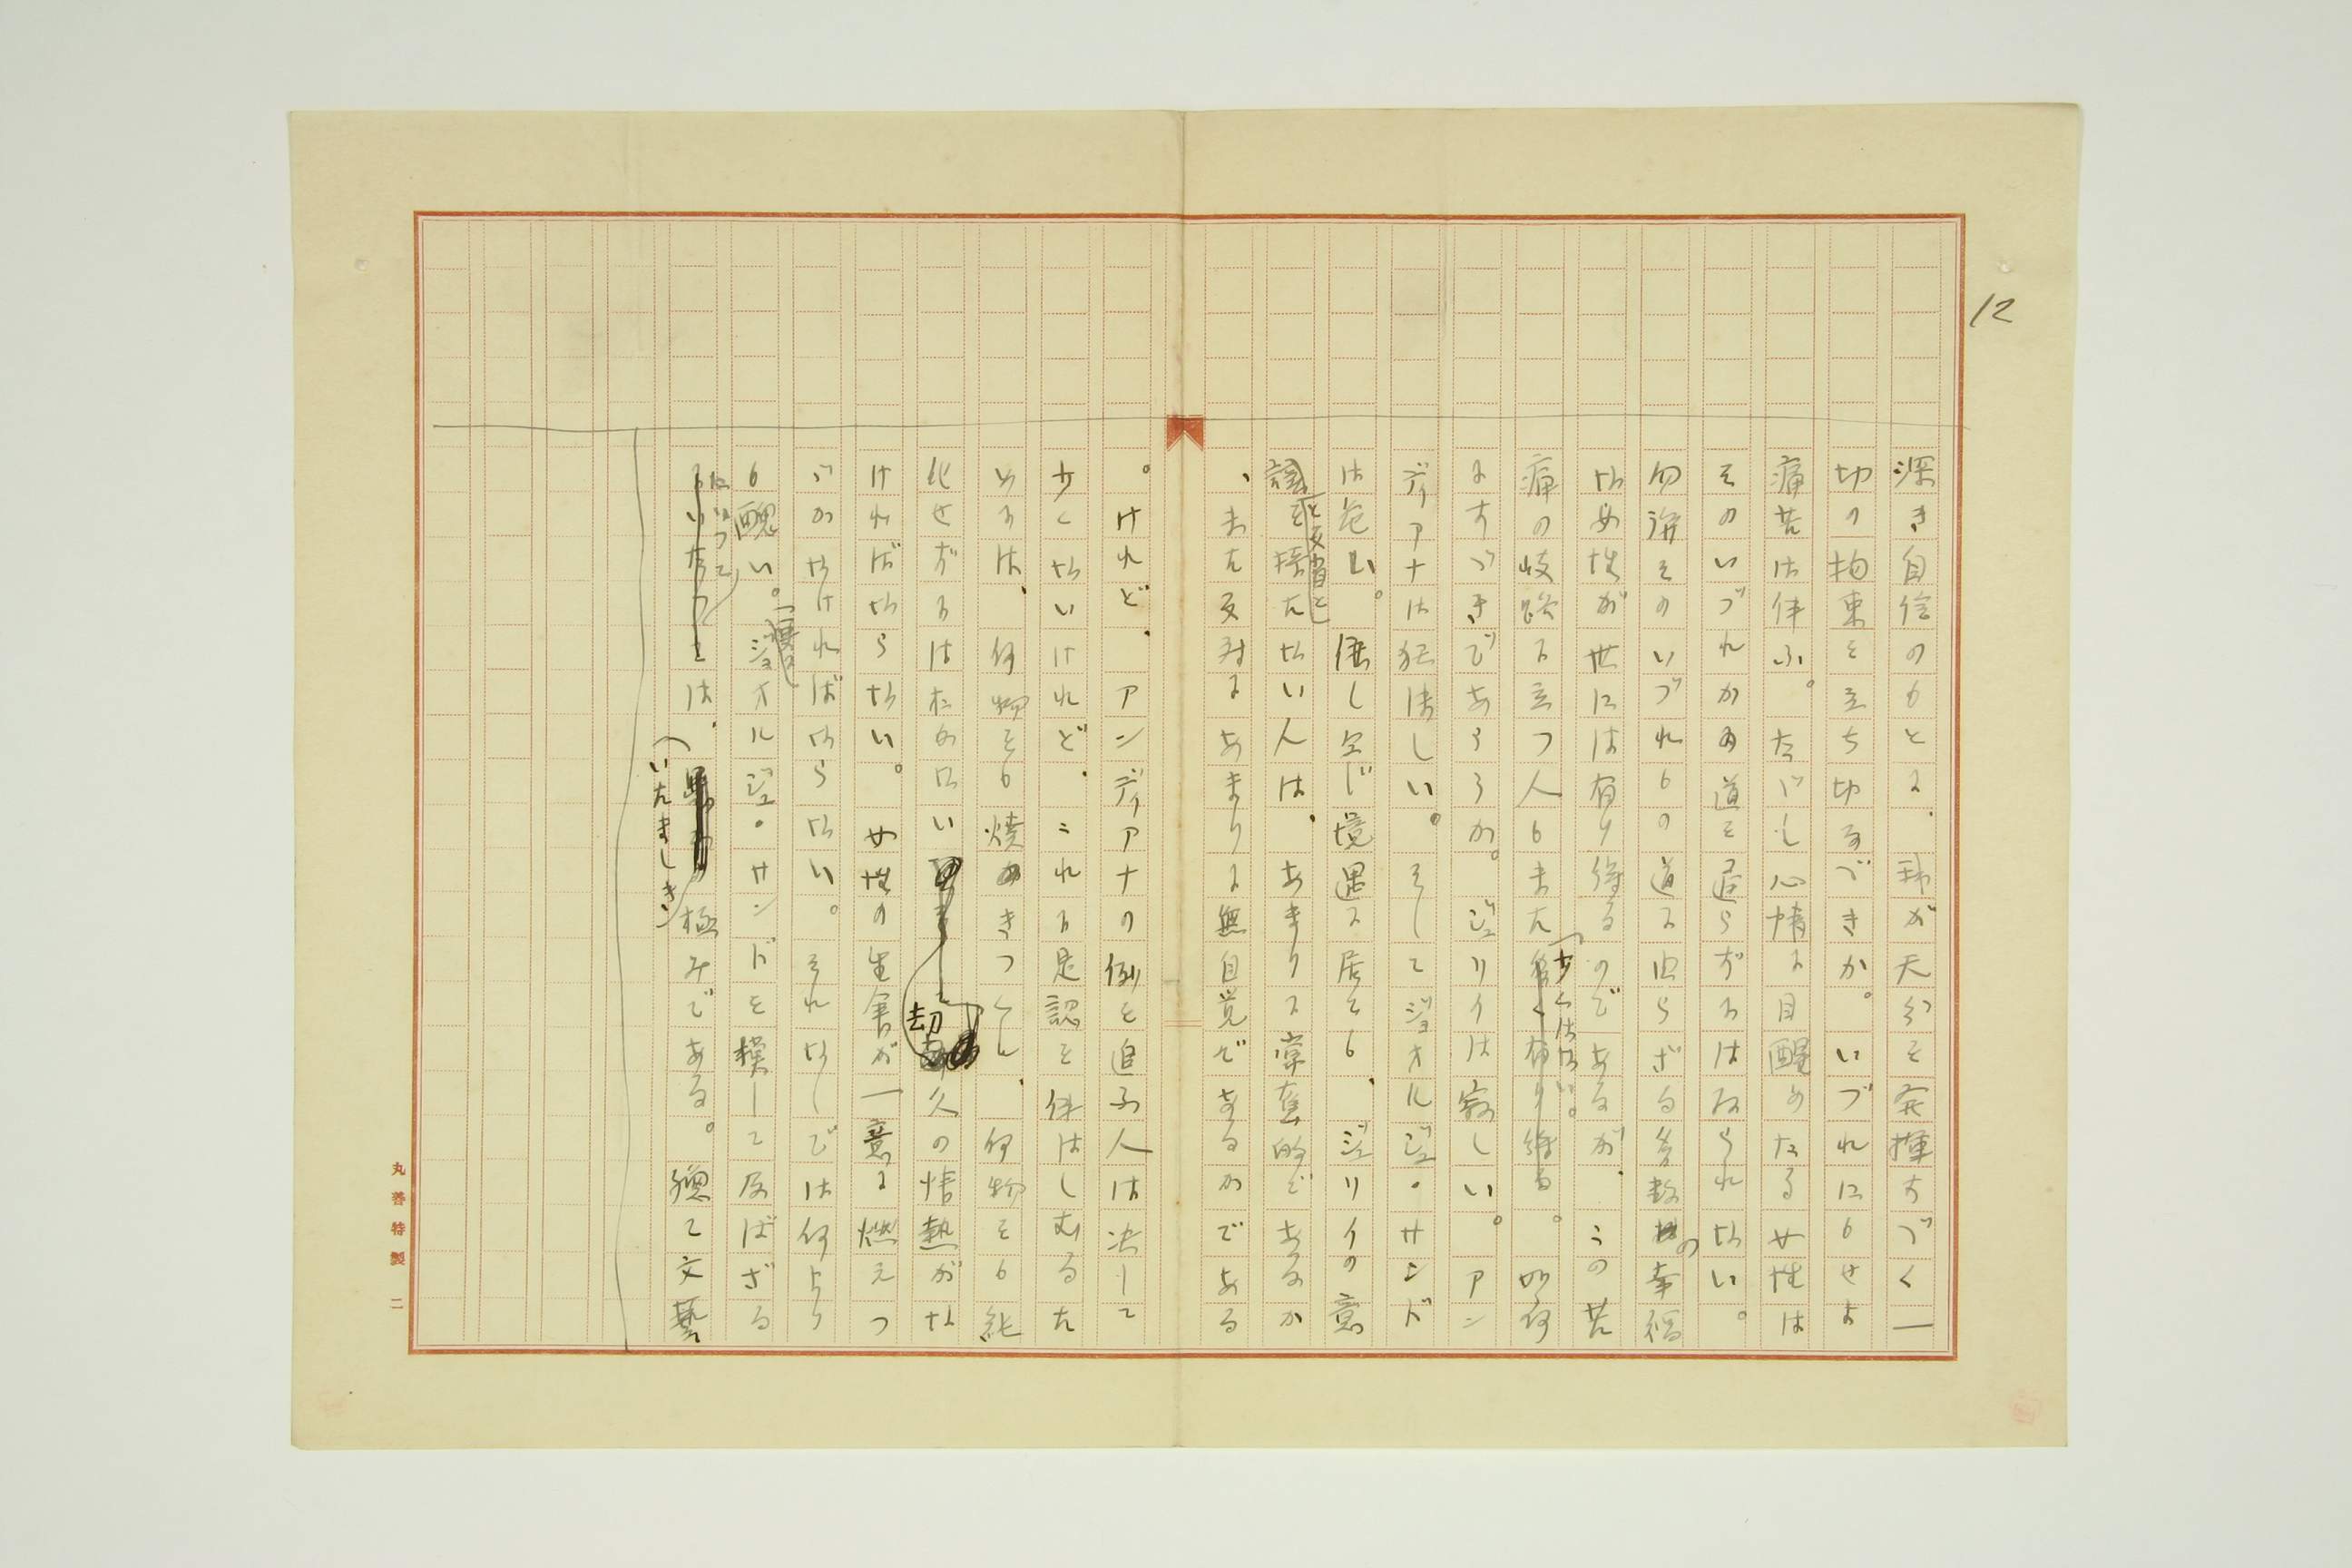 12
深き自信のもとに、我が天分を発揮すべく一
切の拘束を立ち切るべきか。いづれにもせよ
痛苦は伴ふ。たゞし心情に目醒めたる女性は
そのいづれかの道を辿らずにはゐられない。
勿論そのいづれもの道に由らざる多数の幸福
な女性が世には有り得るのであるが、この苦
痛の岐路に立つ人もまた少くはない。如何
にすべきであらうか。ジュリイは寂しい。アン
ディアナは狂ほしい。そしてジョオルジュ・サンド
は危い。但し仝じ境遇に居ても、ジュリイの意
識と反省とを持たない人は、あまりに常套的であるか
、また反対にあまりに無自覚であるかである
。けれど、アンディアナの例を追ふ人は決して
少くないけれど、これに是認を伴はしむるた
めには、何物をも焼きつくし、何物をも純
化せずにはおかない劫久の情熱がな
ければならない。女性の生命が一意に燃えつ
ゞかなければならない。それなしでは何より
も醜い。ジョオルジュ・サンドを模して及ばざる
にいたつては、いたましき極みである。総て文藝
丸善特製 二